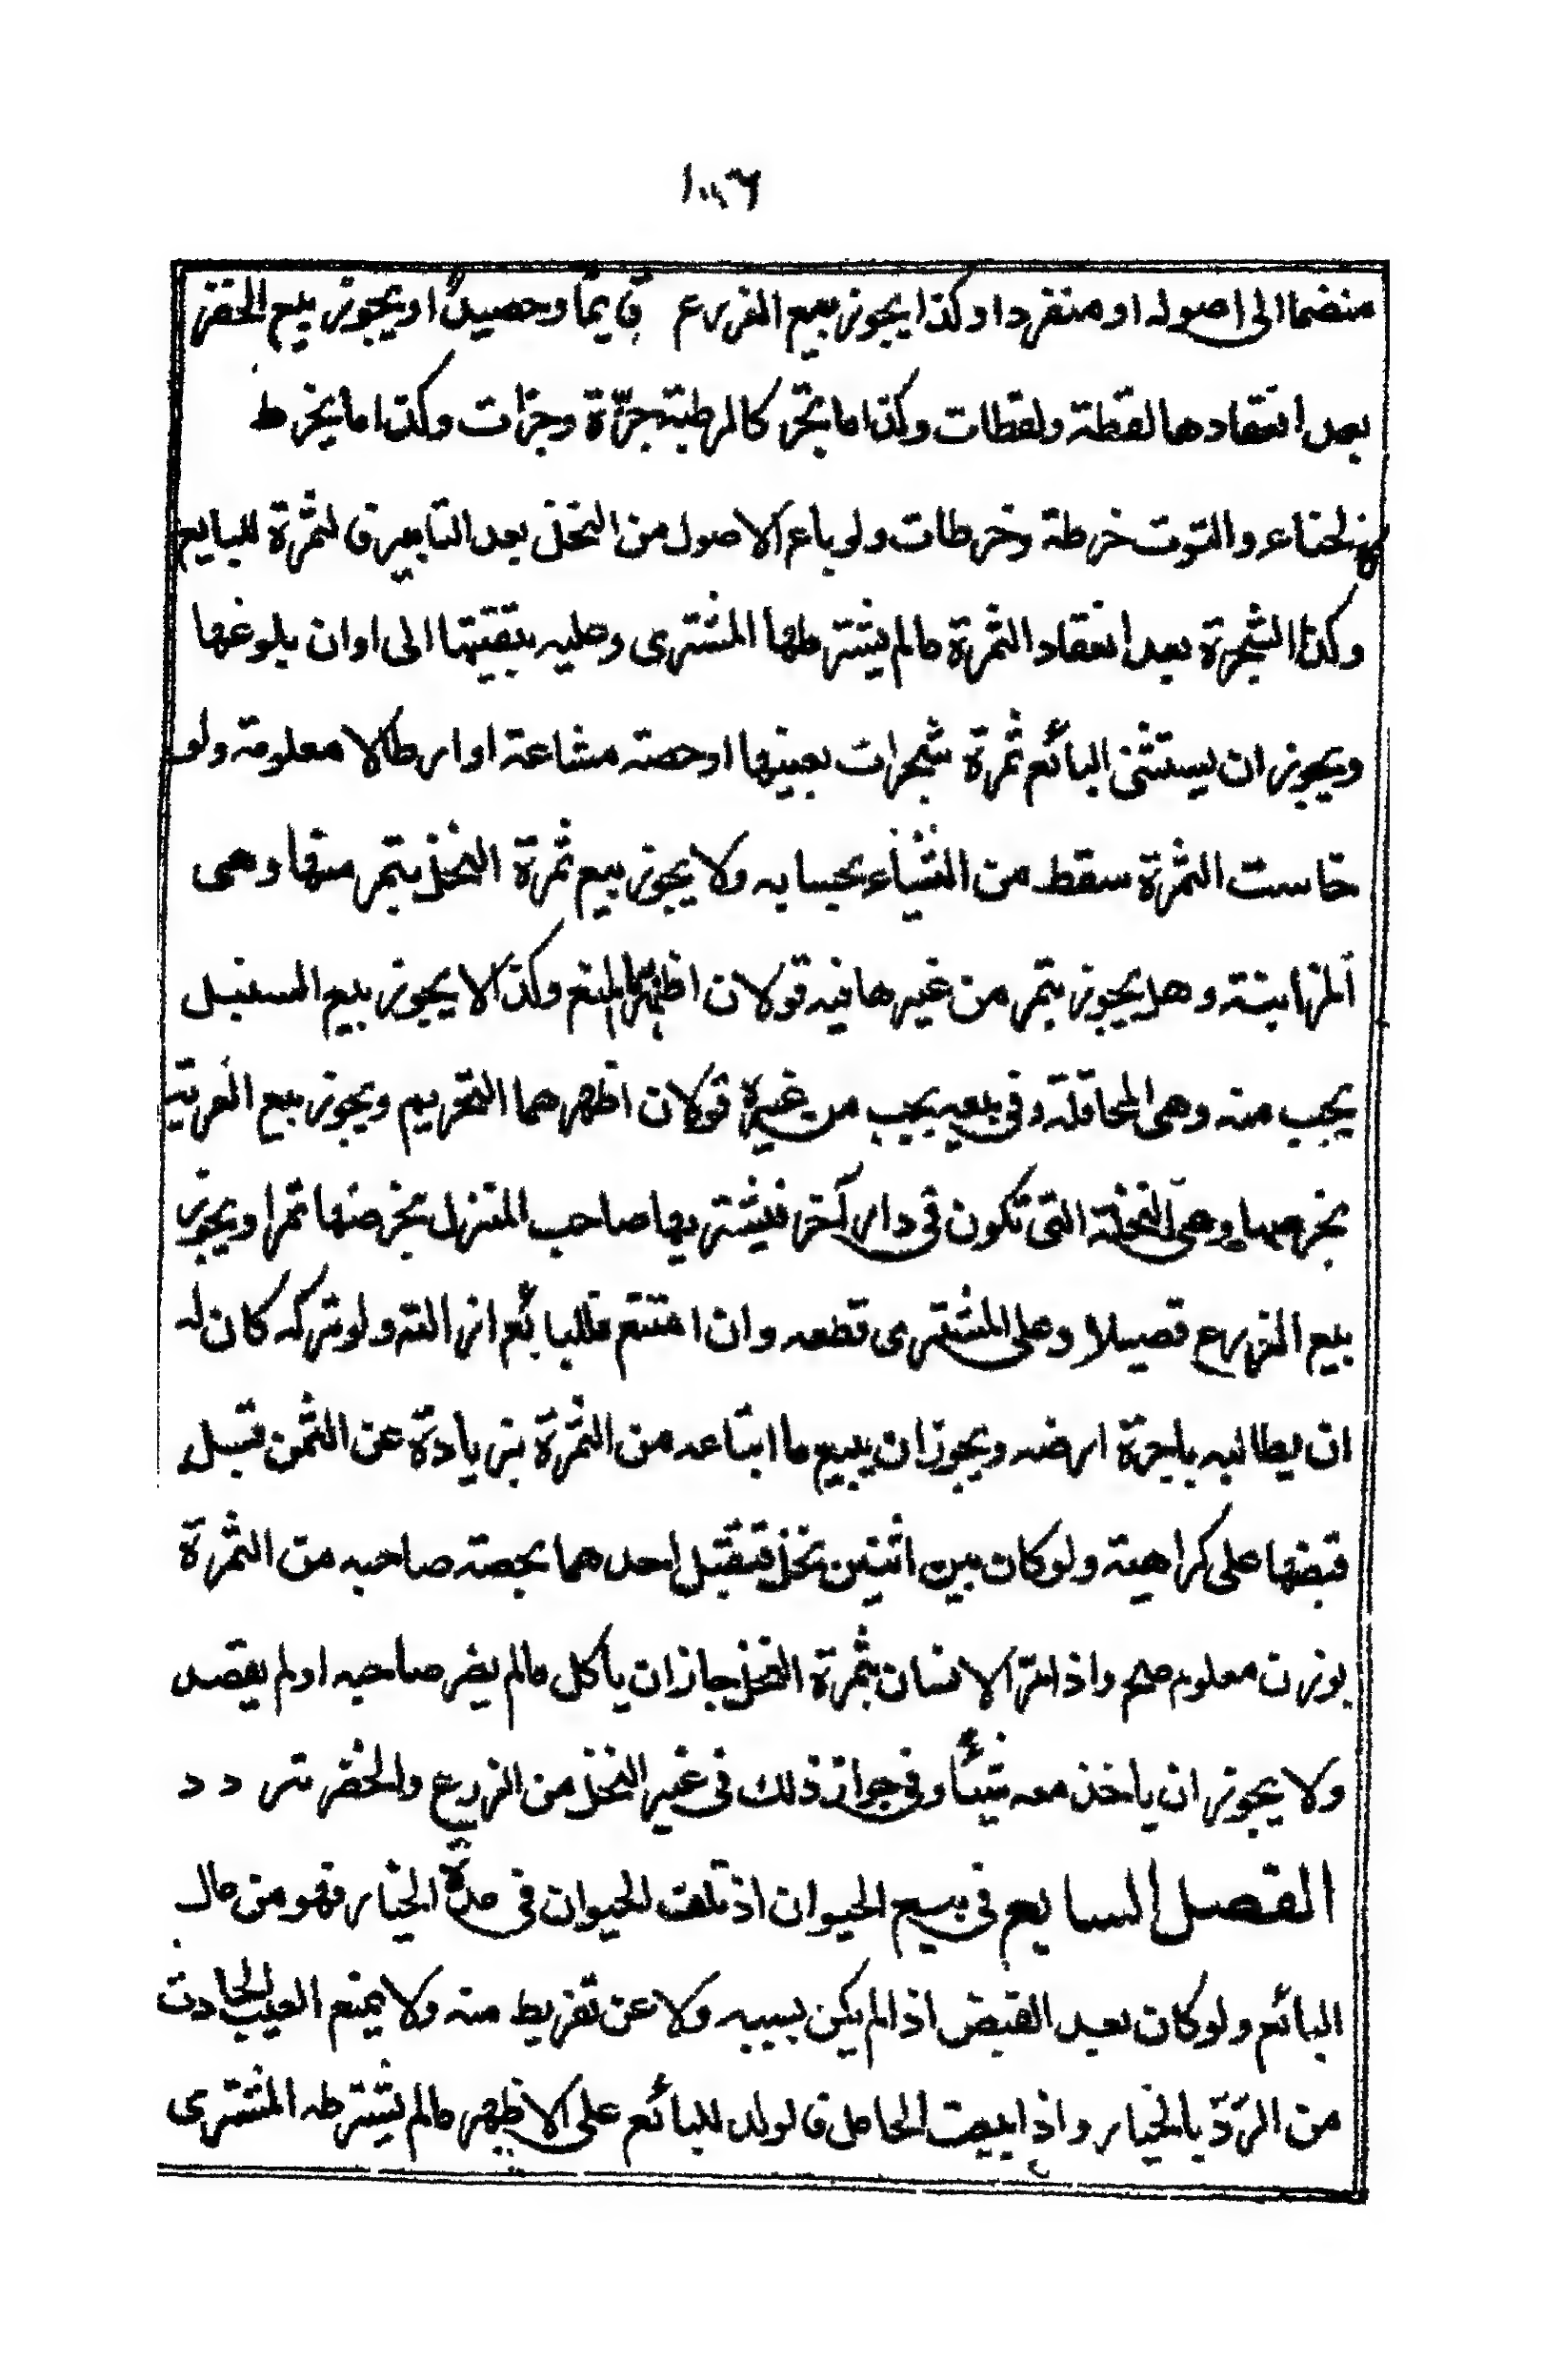 ١٠٠٦
منضما الى اصوله او منفردا وكذا يجوز بيع الزرع قايما وحصيدا ويجوز بيع الخضر
بعد انعقادها لقطة ولقطات وكذا ما يجز كالرطبة جزّة وجزات وكذا ما يخرط
كالحناء والتوت خرطة وخرطات ولو باع الاصول من النخل بعد التابير فالثمرة للبايع
وكذا الشجرة بعد انعقاد الثمرة مالم يشترطها المشترى وعليه تبقيتها الى اوان بلوغها
ويجوز ان يستثنى البائع ثمرة شجرات بعينها او حصته مشاعة او ارطالا معلومة ولو
خاست الثمرة سقط من الثنياء بحسابه ولا يجوز بيع ثمرة النخل بتمر منها وهى
المزابنة وهل يجوز بتمر من غيرها فيه قولان اظهرهما المنع وكذا لا يجوز بيع السنبل
بحب منه وهى المحاقلة وفى بيعه بحب من غيره قولان اظهرهما التحريم ويجوز بيع العرية
بخرصها وهى النخلة التى تكون فى دار آخر فيشتريها صاحب المنزل بخرصها تمرا ويجوز
بيع الزرع قصيلا وعلى المشترى قطعه وان امتنع فللبائع ازالته ولو تركه كان له
ان يطالبه باجرة ارضه ويجوز ان يبيع ما ابتاعه من الثمرة بزيادة عن الثمن قبل
قبضها على كراهية ولو كان بين اثنين نخل فتقبل احدهما بحصته صاحبه من الثمرة
بوزن معلوم صح واذا مرّ الانسان بثمرة النخل جاز ان ياكل مالم يضر صاحبه او لم يقصد
ولا يجوز ان ياخذ معه شيئا وفى جواز ذلك فى غير النخل من الزرع والخضر تردد
الفصل السابع فى بيع الحيوان اذ تلف الحيوان فى مدة الخيار فهو من مال
البائع ولو كان بعد القبض اذا لم يكن بسببه ولا عن تفريط منه ولا يمنع العيب الحادث
من الردّ بالخيار واذا بيعت الحامل فالولد للبائع على الاظهر مالم يشترطه المشترى